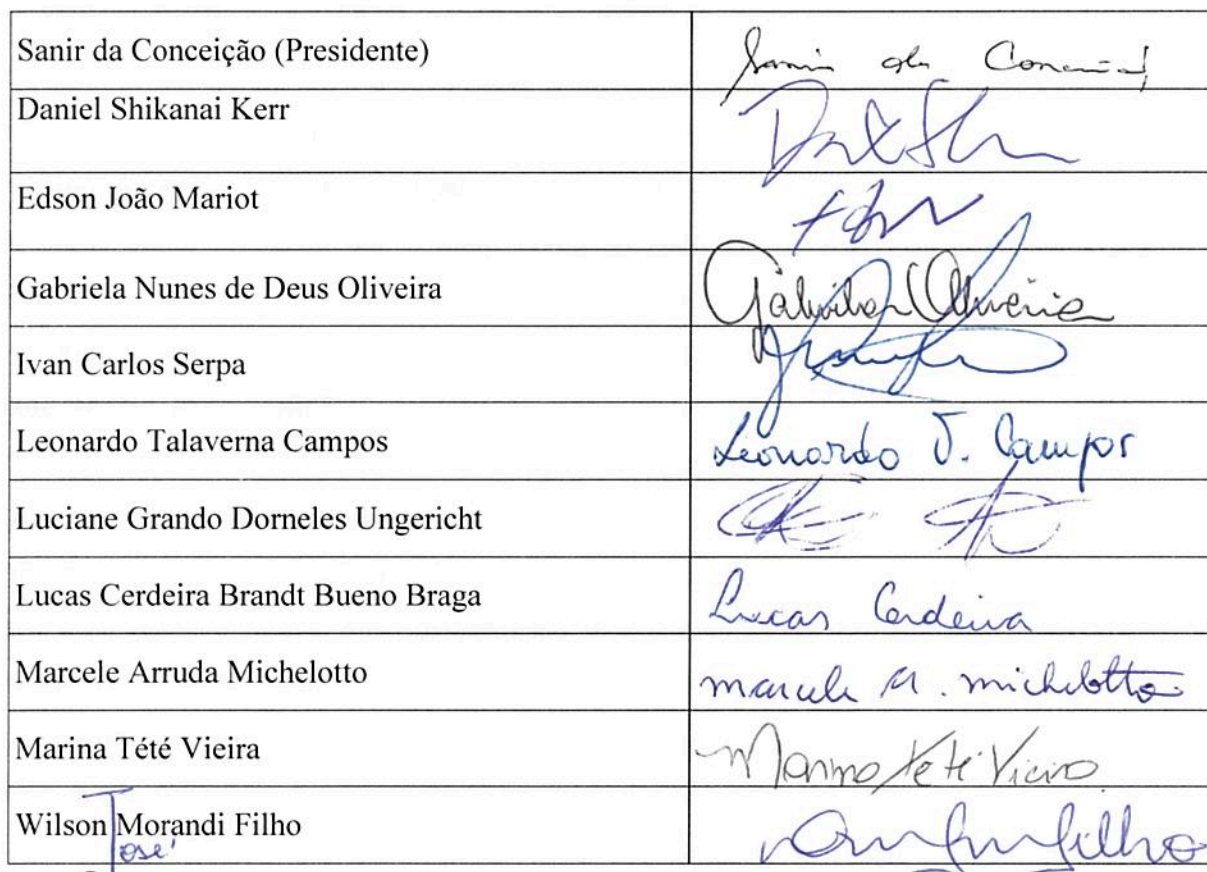 Sanir da Conceição (Presidente) Sanir da Conceição
Daniel Shikanai Kerr
Edson João Mariot
Gabriela Nunes de Deus Oliveira Gabriela Oliveira
Ivan Carlos Serpa
Leonardo Talaverna Campos Leonardo T. Campos
Luciane Grando Dorneles Ungericht
Lucas Cerdeira Brandt Bueno Braga Lucas Cerdeira
Marcele Arruda Michelotto Marcele A. Michelotto
Marina Tété Vieira Marina Tété Vieira
Wilson Morandi Filho
José